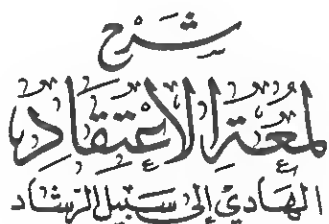 شَرْح
لمُعَةِ الاعْتِقَادِ
الهَادِي إِلى سَبيلِ الرَشَاد